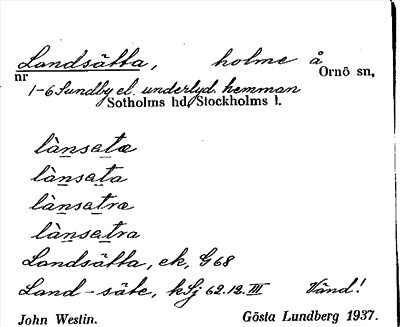 Landsätta, holme å
nr Ornö sn,
1-6 Sundby el. underlyd. hemman
Sotholms hd, Stockholms l.
lànsatæ
lànsata
lànsatræ
lànsatra
Landsätta, ek, G 68
Land-säte, kSj 62.12.III Vänd!
John Westin. Gösta Lundberg 1937.